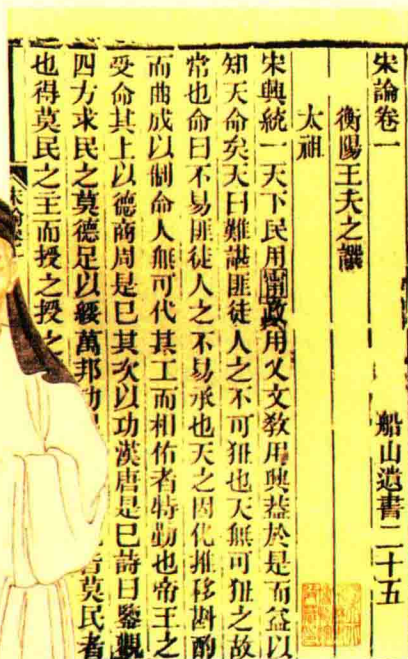 宋論卷一 船山遺書二十五
衡陽王夫之譔
太祖
宋興統一天下民用寧政用乂文教用興蓋於是而益以
知天命矣天曰難諶匪徒人之不可狃也天無可狃之故
常也命曰不易匪徒人之不易承也天之因化推移斟酌
而曲成以制命人無可代其工而相佑者特勤也帝王之
受命其上以德商周是已其次以功漢唐是已詩曰鑒觀
四方求民之莫德足以綏萬邦功皆莫民者
也得莫民之主而授之授之